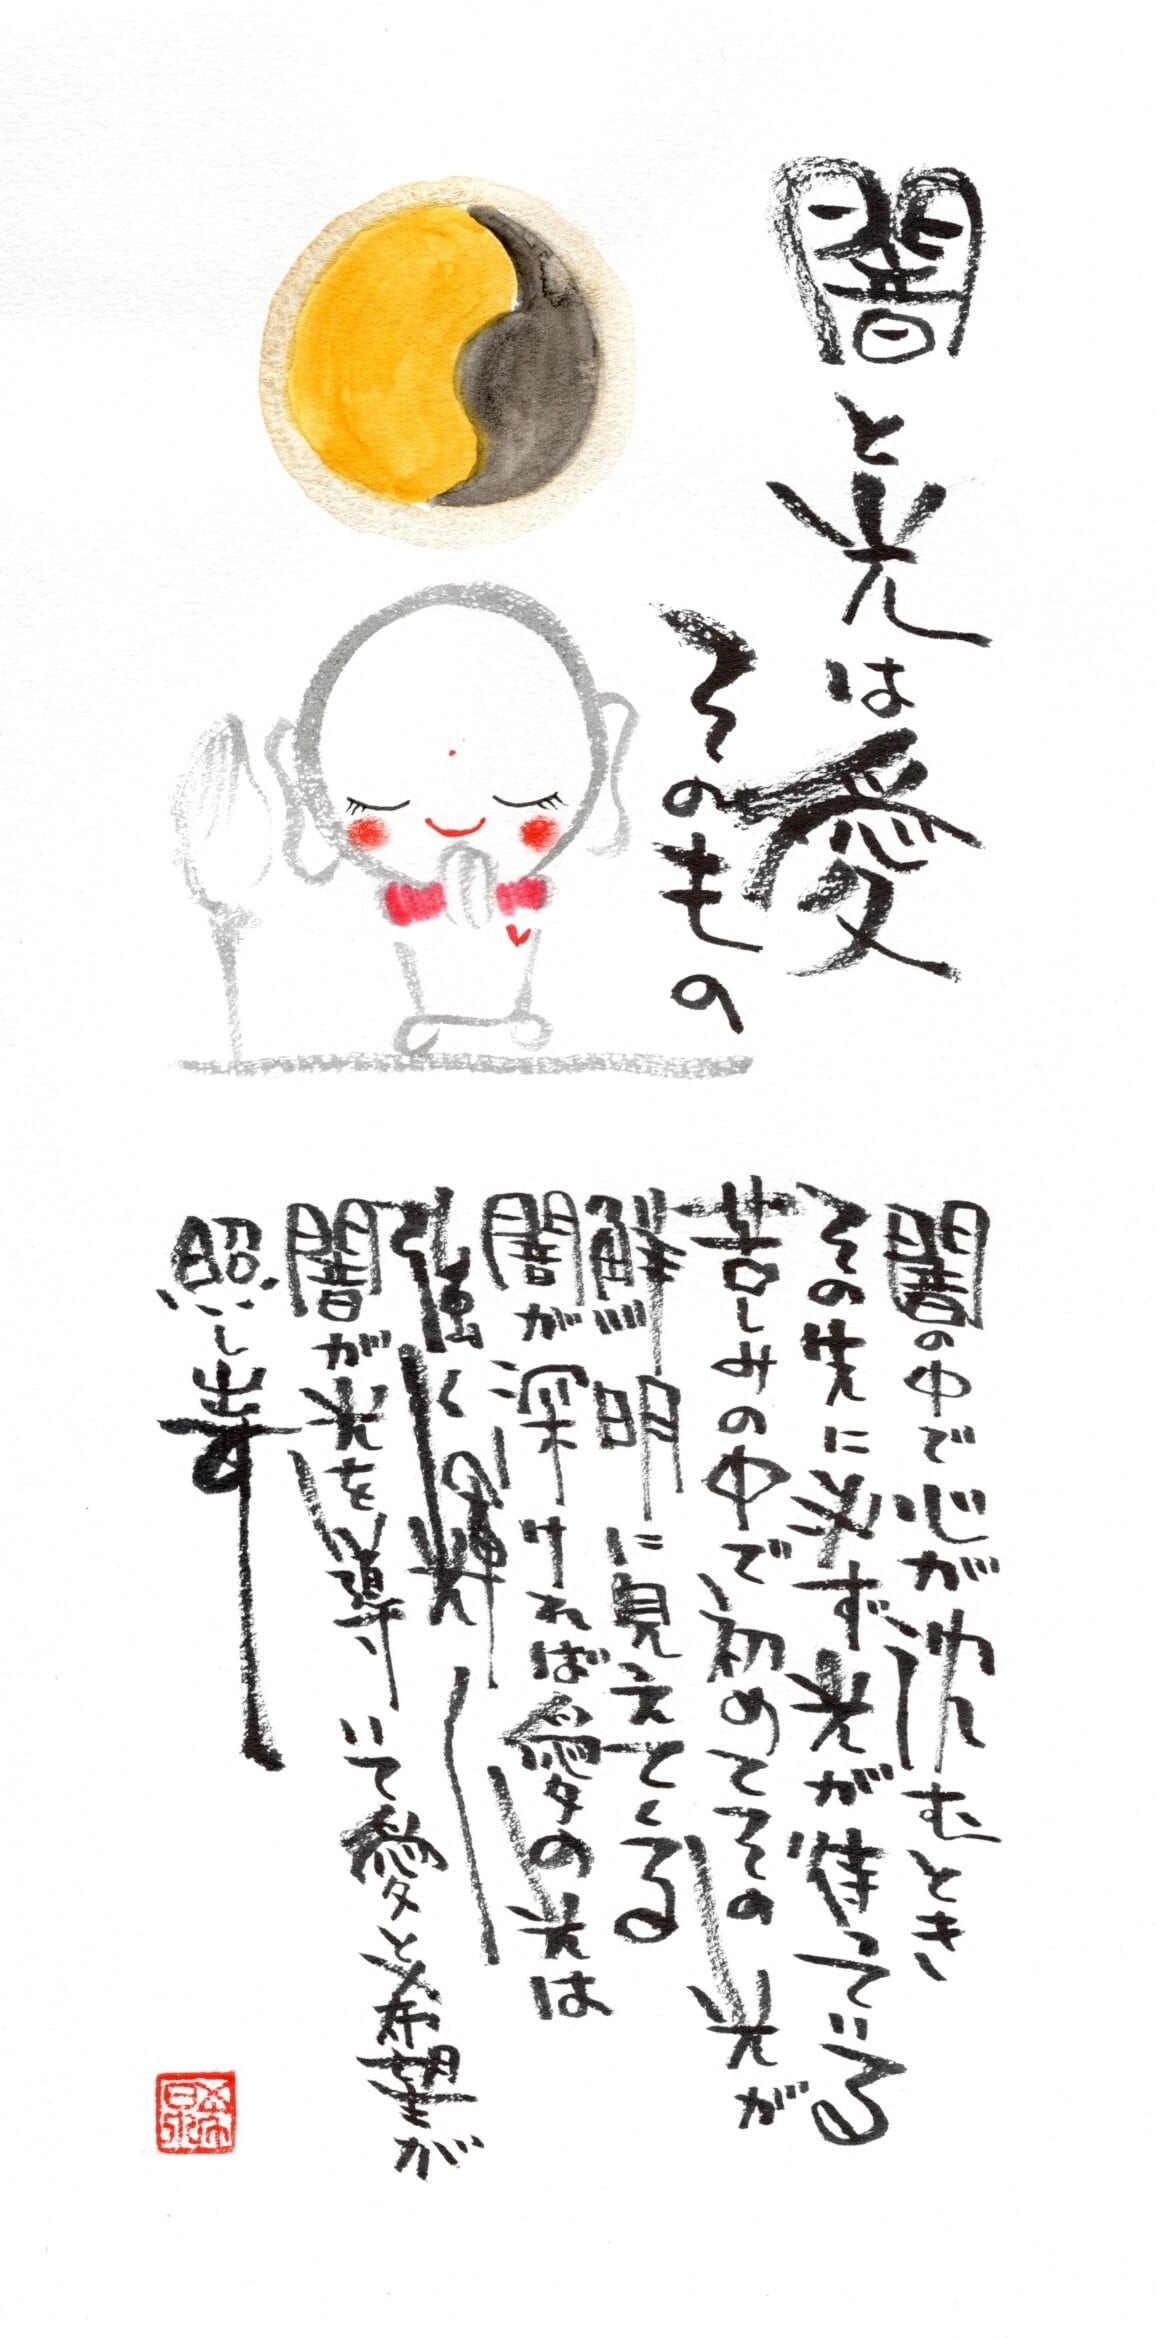 闇と光は愛
そのもの
闇の中で心が沈むとき
その先に必ず光が待っている
苦しみの中で初めてその光が
鮮明に見えてくる
闇が深ければ愛の光は
強く輝く
闇が光を導いて愛と希望が
照し出す